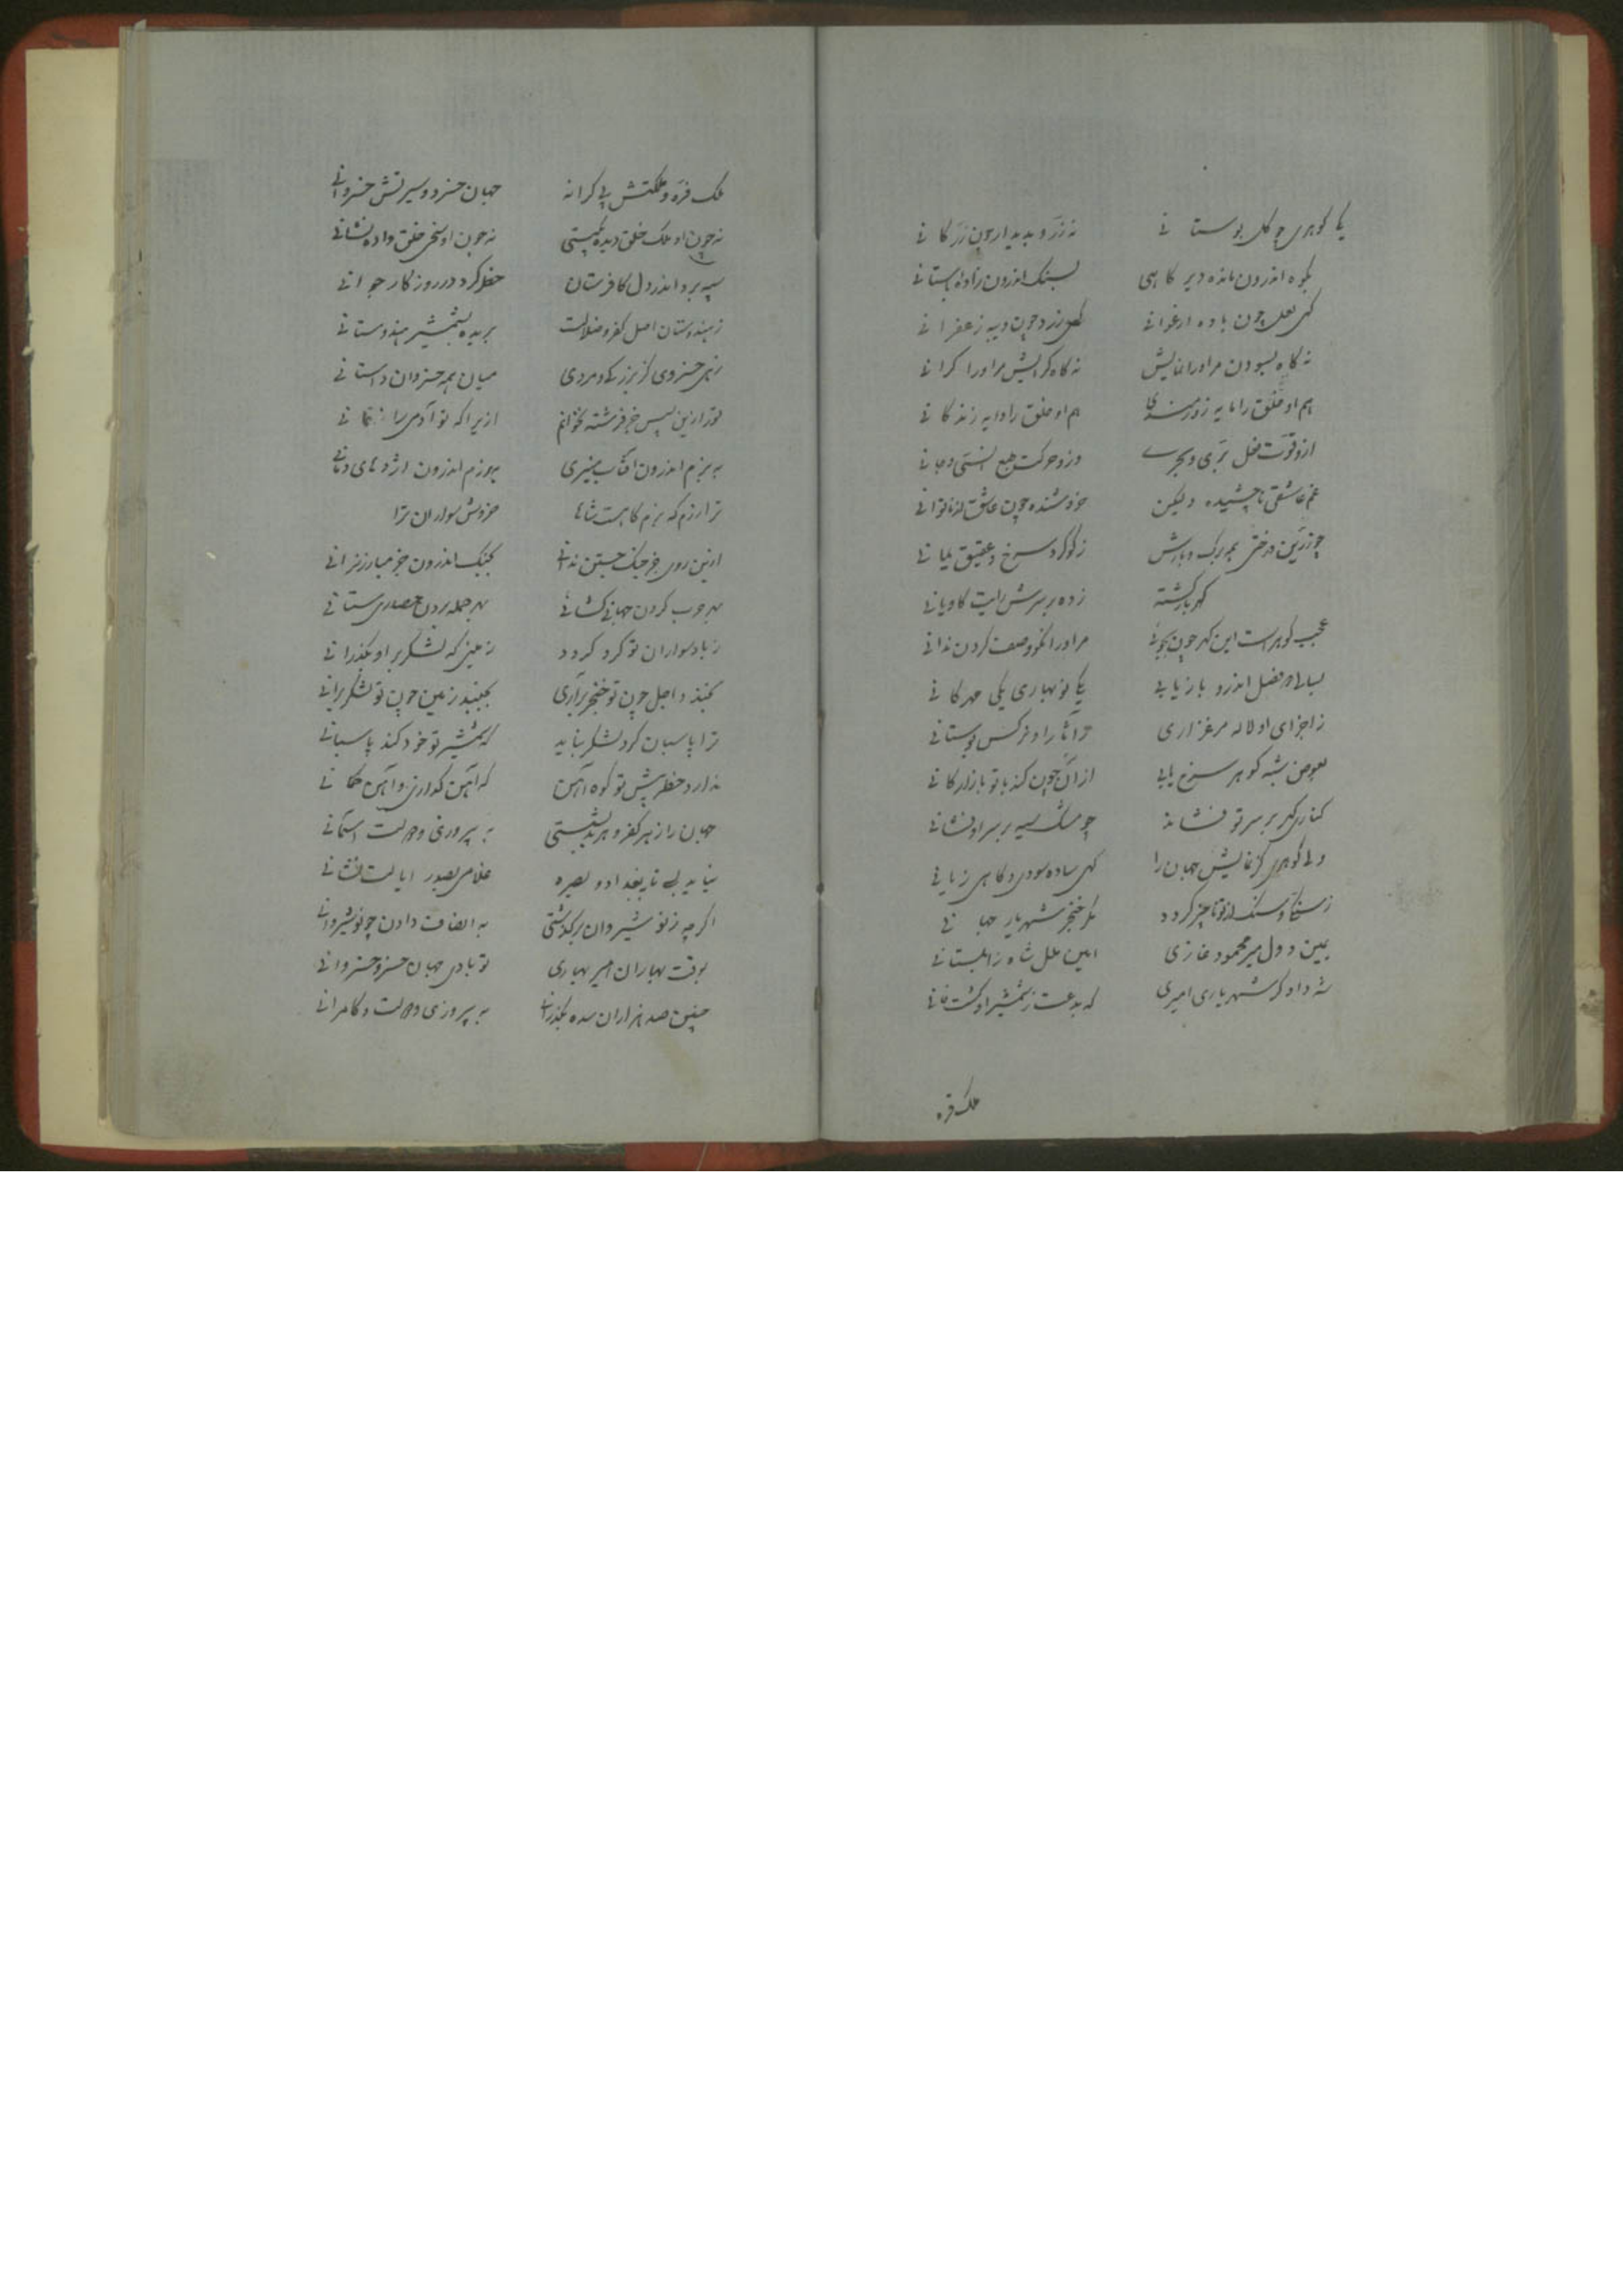 یکی گوهری چو گل بوستانی نه زر و بدیدار چون زر کانی
بکوه اندرون مانده دیر گاهی بسنگ اندرون زاده باستانی
گهی لعل چون باده ارغوانی گهی زرد چون دیبه زعفرانی
نه گاه بسودن مر او را نمایش نه گاه گرایش مر او را گرانی
هم او خلق را مایه زورمندی هم او خلق را دایه زندگانی
ازو قوت فعل بری و بحری وزو حرکت طبع انسی و جانی
غم عاشقی ناچشیده ولیکن خروشنده چون عاشق از ناتوانی
چو زرین درختی همه برک و بارش ز کوکرد سرخ و عقیق یمانی
کهربا کشته زده بر سرش رایت کاویانی
عجب گوهرست این گهر چون بجوئی مر او را نکو وصف کردن ندانی
بسال اندر و بازیابی یکی نوبهاری یکی مهرگانی
ز اجزای او لاله مرغزاری ز آثار او نرگس بوستانی
بعوض شبه گوهر سرخ یابی ازان چون کند با تو بازارگانی
کناری گهر بر سر تو فشاند چو مشک سیه بر سر او فشانی
ولی گوهری کز نمایش جهان را گهی ساده سودی و گاهی زیانی
از تو ناچیز گردد مگر خنجر شهریار جهانی
یمین دول میر محمود غازی امین ملل شاه زابلستانی
شه دادگر شهریاری امیری که بدعت ز شمشیر او گشت فانی
ملک فره
ملک فره و ملکتش بی کرانه جهان خسرو و سیرتش خسروانی
نه چون او ملک خلق دیده بگیتی نه چون او سخی خلق داده نشانی
سپه برد اندر دل کافرستان خطر کرد در روزکار جوانی
ز هندوستان اصل کفر و ضلالت بریده بشمشیر هندوستانی
زهی خسروی کز بزرگی و مردی میان همه خسروان داستانی
تو را زین سپس جز فرشته نخوانم ازیرا که تو آدمی را نمانی
به بزم اندرون آفتاب منیری برزم اندرون اژدهای دمانی
ترا رزمگه بزم گاهست شاها خروش سواران ترا
ازین روی جز جنگ جستن ندانی بجنگ اندرون جز مبارز نرانی
بهر حرب کردن جهانی گشائی بهر حمله بردن حصاری ستانی
ز باد سواران تو گرد گردد زمینی که لشکر بر او بگذرانی
بخندد اجل چون تو خنجر برآری بجنبد زمین چون تو لشکر برانی
ترا پاسبان گرد لشکر نباید که شمشیر تو خود کند پاسبانی
ندارد خطر پیش تو کوه آهن که آهن گذاری و آهن
جهان را ز هر کفر و هر بد بشستی به پیروزی و دولت آسمانی
نیاید بی تا ببغداد و بصره غلامی بصدر ایالت نشانی
اگر چه ز نوشیروان برگذشتی به انصاف دادن چو نوشیروانی
بوقت بهاران امیر بهاری تو بادی جهان خسرو خسروانی
چنین صد هزاران سده بگذرانی به پیروزی و دولت و کامرانی